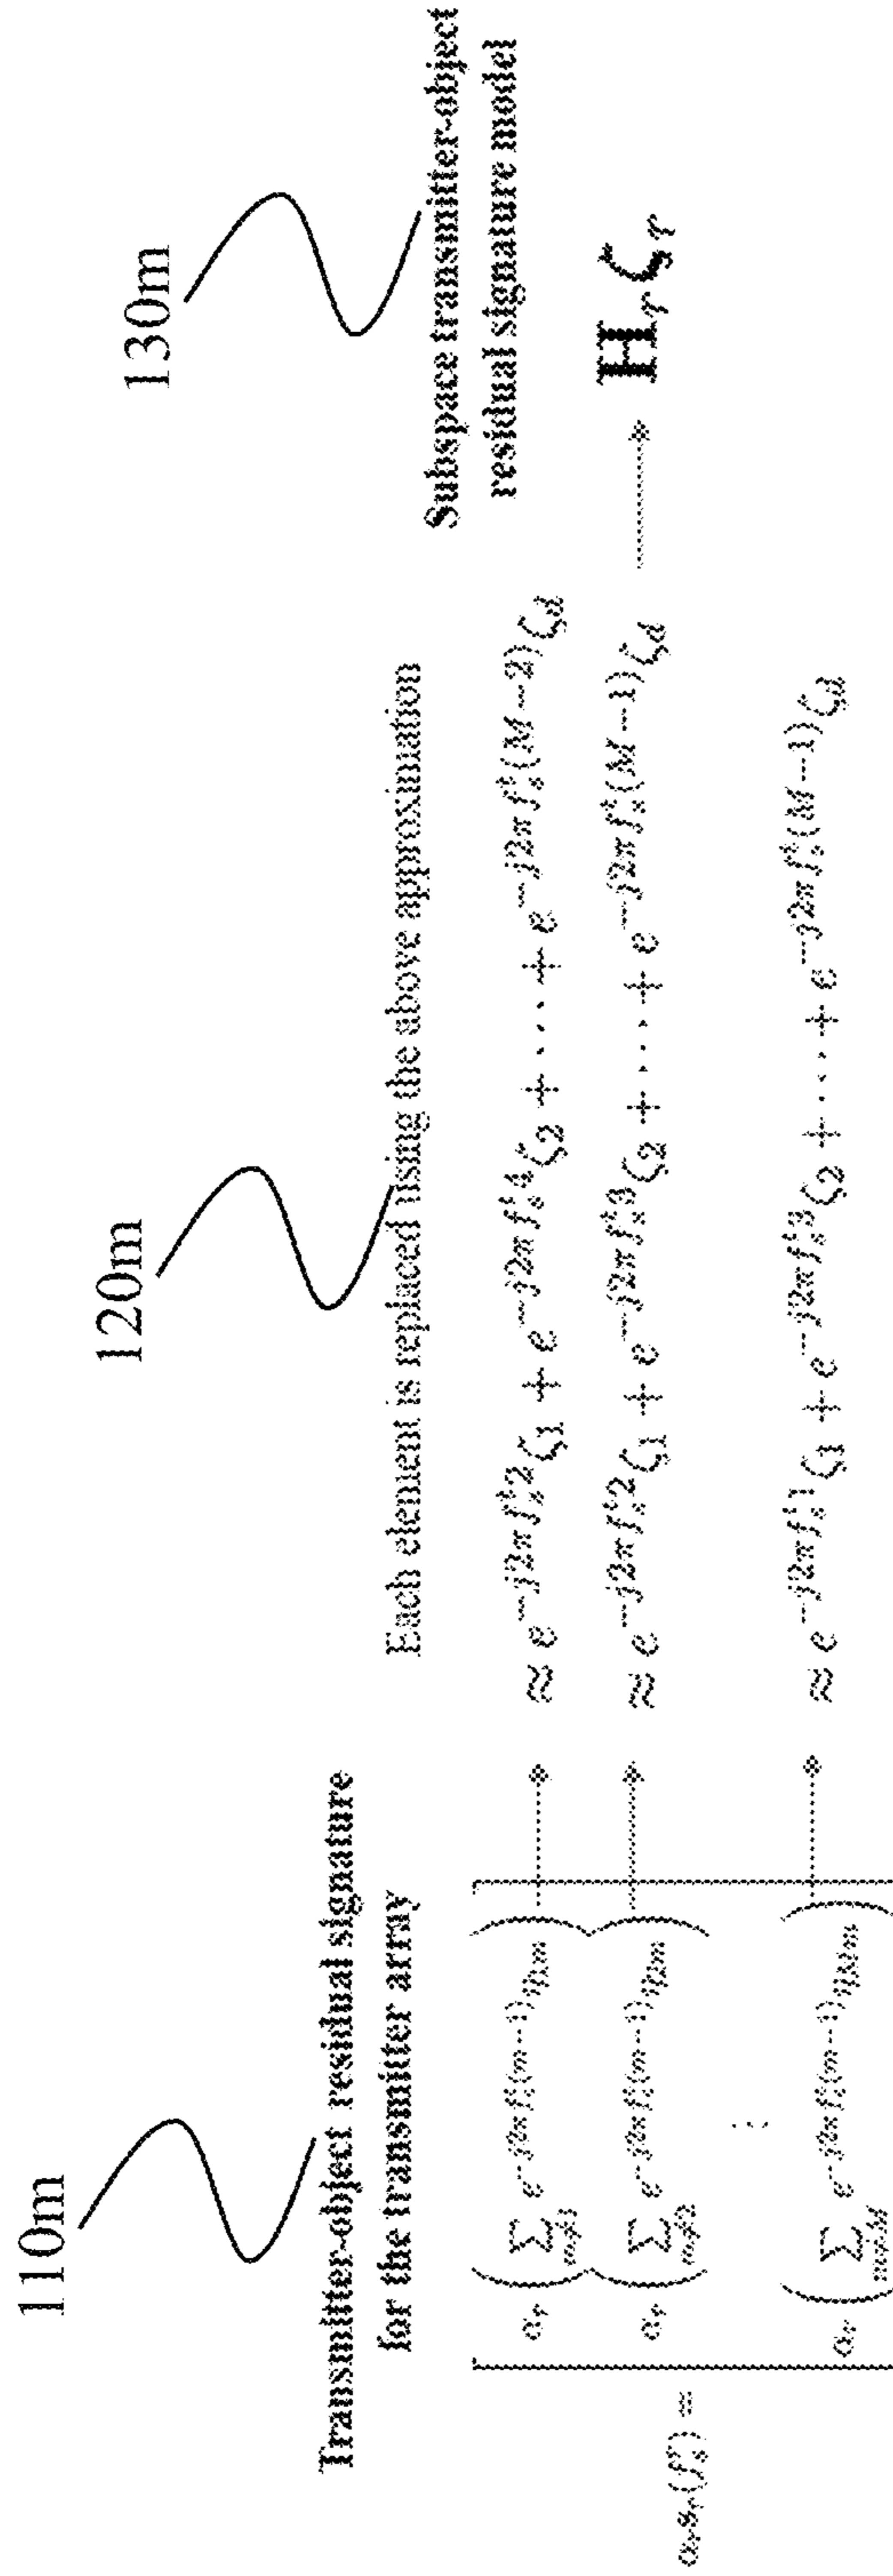 110m
Transmitter-object residual signature
for the transmitter array
α_r s_r(f_s^t) =
α_r ( ∑_{m≠1} e^{-j2πf_s^t(m-1)} η_{1m} )
α_r ( ∑_{m≠2} e^{-j2πf_s^t(m-1)} η_{2m} )
⋮
α_r ( ∑_{m≠M} e^{-j2πf_s^t(m-1)} η_{Mm} )
120m
Each element is replaced using the above approximation
≈ e^{-j2πf_s^t2}ζ_1 + e^{-j2πf_s^t4}ζ_2 + ⋯ + e^{-j2πf_s^t(M-2)}ζ_d
≈ e^{-j2πf_s^t2}ζ_1 + e^{-j2πf_s^t3}ζ_2 + ⋯ + e^{-j2πf_s^t(M-1)}ζ_d
≈ e^{-j2πf_s^t1}ζ_1 + e^{-j2πf_s^t3}ζ_2 + ⋯ + e^{-j2πf_s^t(M-1)}ζ_d
130m
Subspace transmitter-object
residual signature model
H_rζ_r